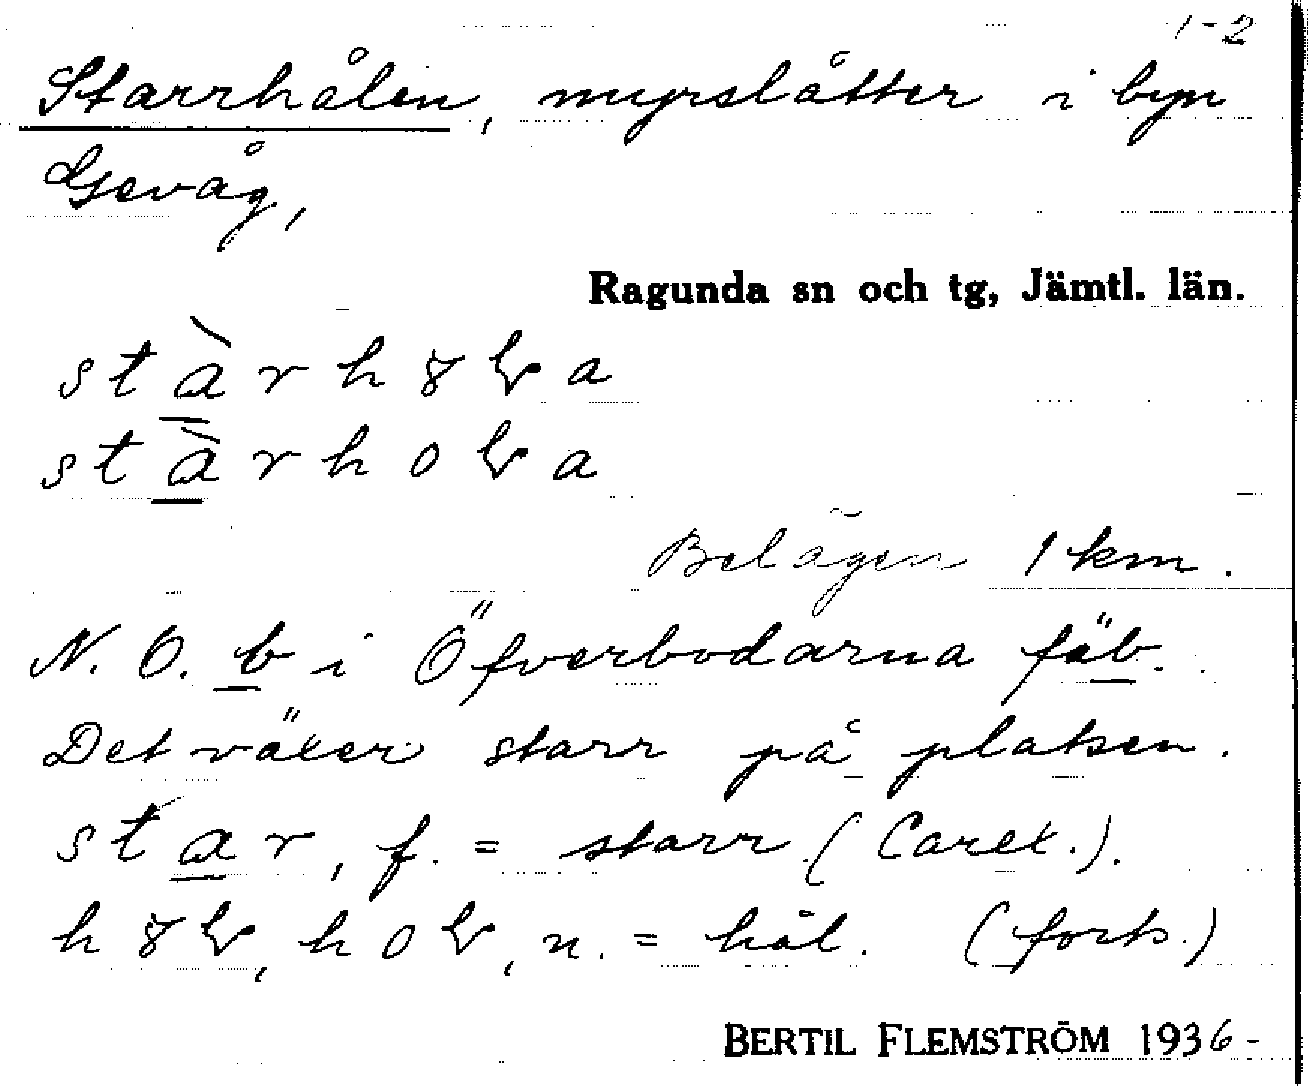 1-2
Starrhålen, myrslåtter i byn
Gevåg,
Ragunda sn och tg, Jämtl. län.
stàrh8ɽa
stàrhoɽa
Belägen 1 km.
N. O. b i Öfverbodarna fäb.
Det växer starr på platsen.
star, f. = starr (Carex.).
h8ɽ, hoɽ, n. = hål. (forts.)
BERTIL FLEMSTRÖM 1936-